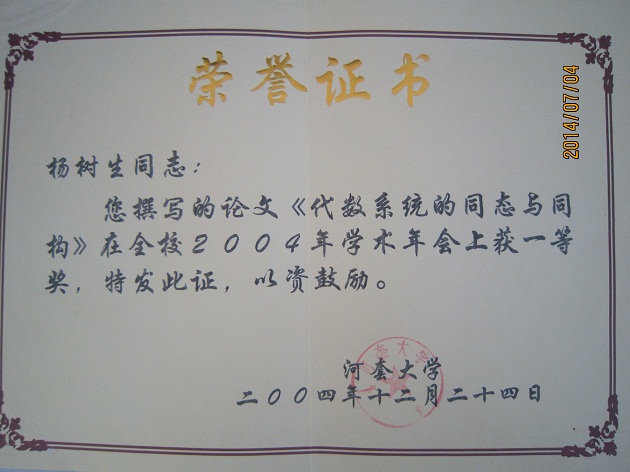 荣誉证书
2014/07/04
杨树生同志：
您撰写的论文《代数系统的同态与同
构》在全校2004年学术年会上获一等
奖，特发此证，以资鼓励。
河套大学
二〇〇四年十二月二十四日